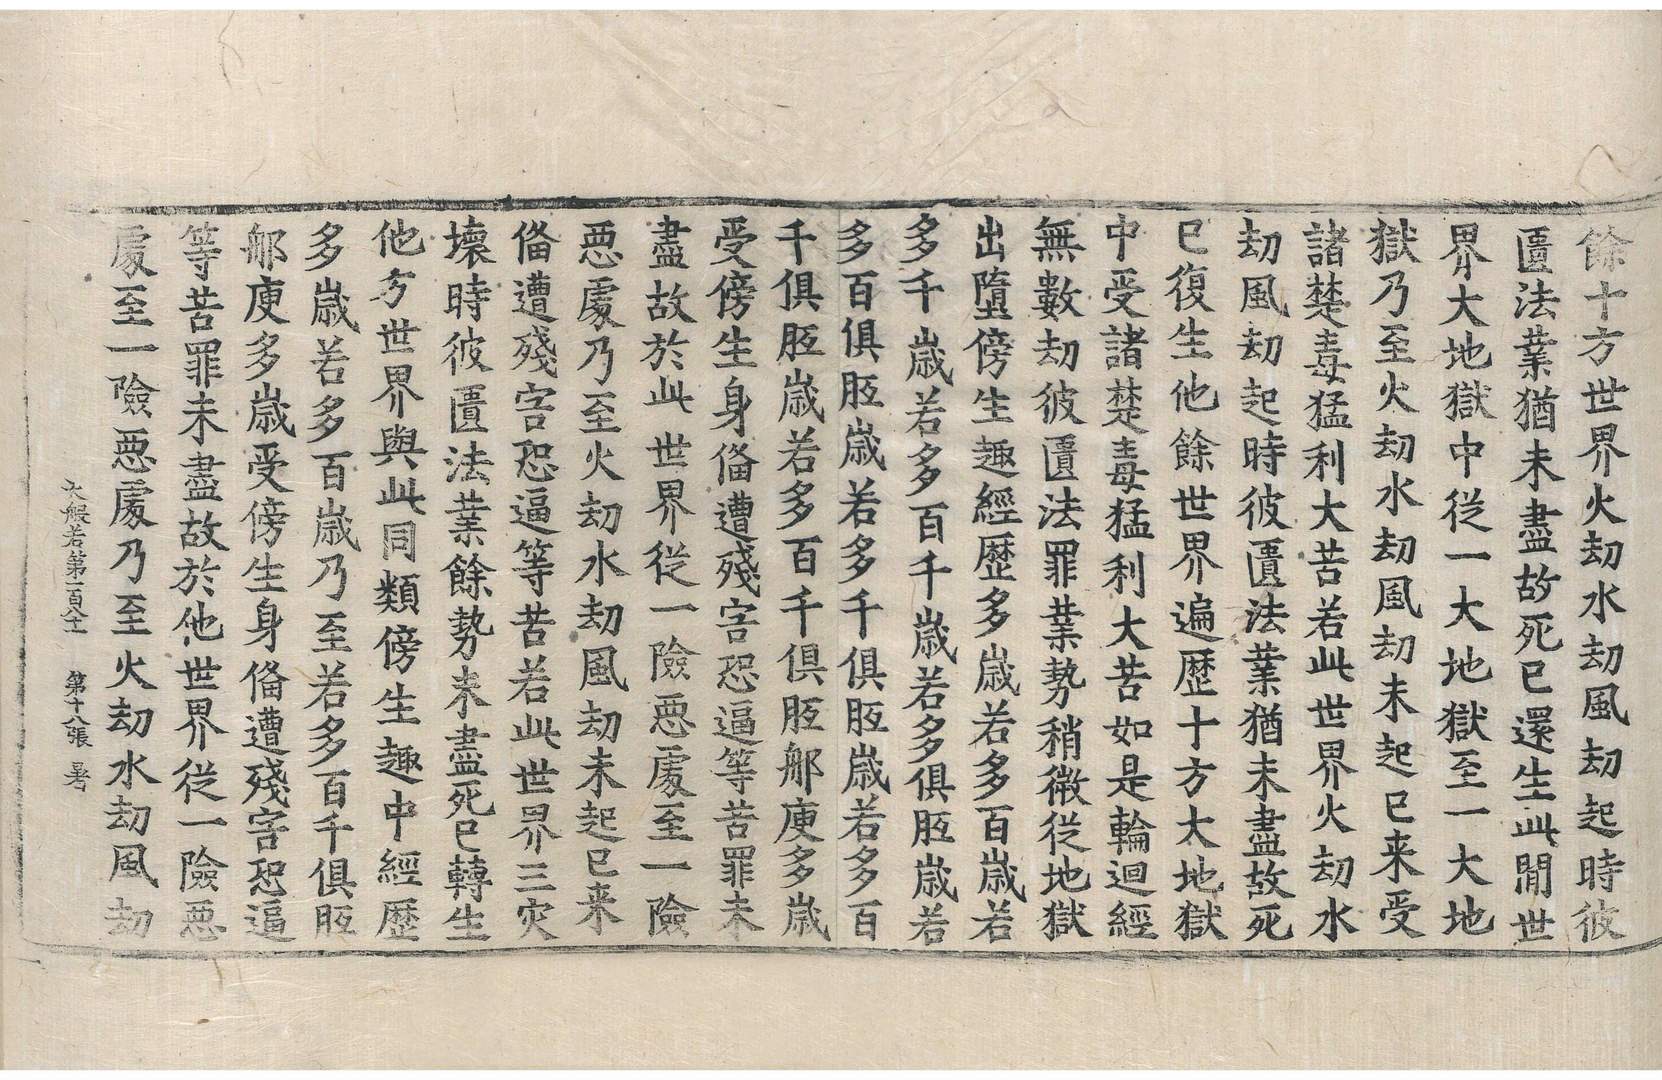 餘十方世界火劫水劫風劫起時彼
匱法業猶未盡故死已還生此閒世
界大地獄中從一大地獄至一大地
獄乃至火劫水劫風劫未起已来受
諸楚毒猛利大苦若此世界火劫水
劫風劫起時彼匱法業猶未盡故死
已復生他餘世界遍歷十方大地獄
中受諸楚毒猛利大苦如是輪迴經
無數劫彼匱法罪業勢稍微從地獄
出墮傍生趣經歷多歲若多百歲若
多千歲若多百千歲若多俱胝歲若
多百俱胝歲若多千俱胝歲若多百
千俱胝歲若多百千俱胝那庾多歲
受傍生身俻遭殘害恐逼等苦罪未
盡故於此世界從一險惡處至一險
惡處乃至火劫水劫風劫未起已来
俻遭殘害恐逼等苦若此世界三灾
壞時彼匱法業餘勢未盡死已轉生
他方世界與此同類傍生趣中經歷
多歲若多百歲乃至若多百千俱胝
那庾多歲受傍生身俻遭殘害恐逼
等苦罪未盡故於他世界從一險惡
處至一險惡處乃至火劫水劫風劫
大般若第一百八十一 第十八張 暑